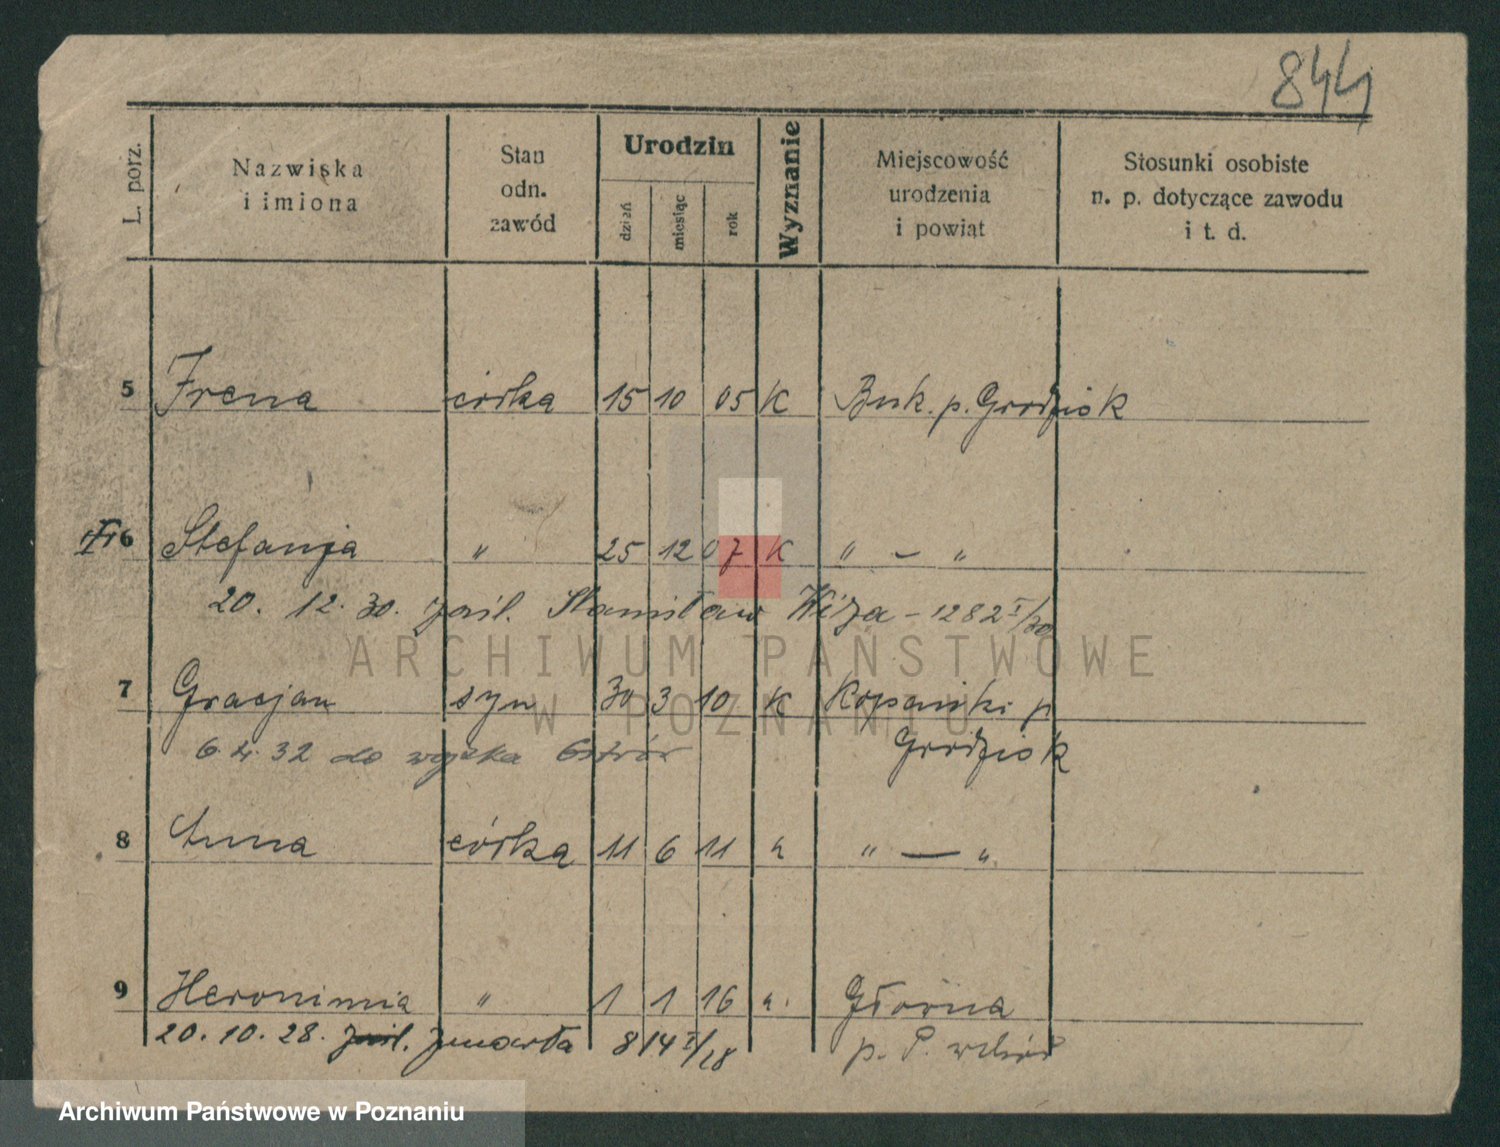 844
L. porz.
Nazwiska
i imiona
Stan
odn.
zawód
Urodzin
dzień
miesiąc
rok
Wyznanie
Miejscowość
urodzenia
i powiat
Stosunki osobiste
n. p. dotyczące zawodu
i t. d.
5 Irena córka 15 10 05 K Buk. p. Grodzisk
6 Stefanja " 25 12 07 K " — "
20. 12. 30. zaśl. Stanisław Wiza – 1282 I/30
ARCHIWUM PAŃSTWOWE
W POZNANIU
7 Gracjan syn 30 3 10 K p
Grodzisk
6. 4. 32 do wojska Ostrów
8 Anna córka 11 6 11 " " — "
9 Heronimia " 1 1 16 " Główna
20. 10. 28. zaśl. zmarła 814 I/28 p. P. wschód
Archiwum Państwowe w Poznaniu